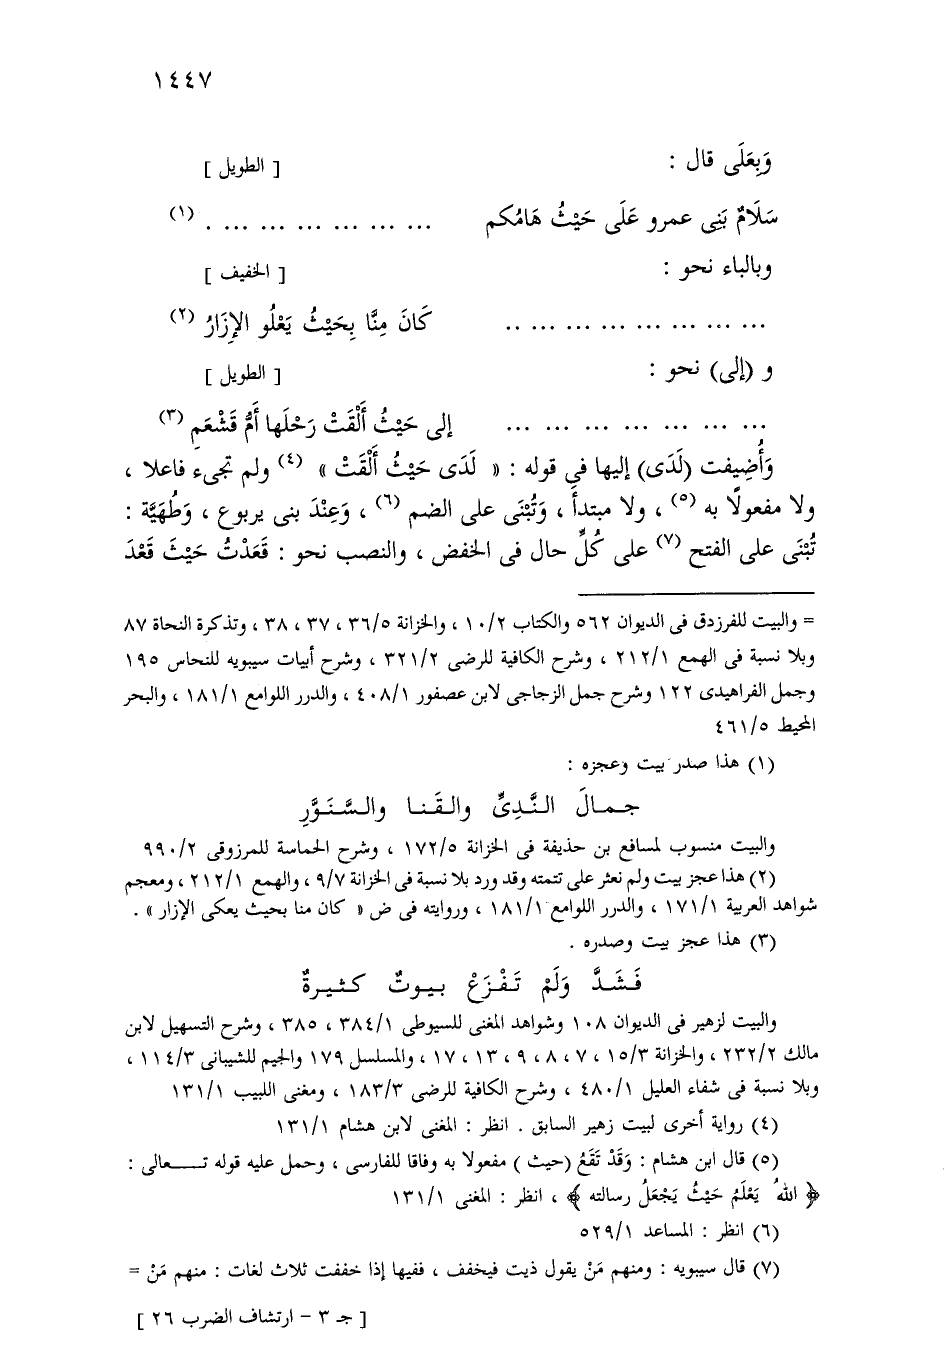 ١٤٤٧
وَبِعَلَى قال : [ الطويل ]
سَلَامٌ بَنِى عمرو عَلَى حَيْثُ هَامُكم ... ... ... ... ... ... . (١)
وبالباء نحو : [ الخفيف ]
... ... ... ... ... ... ... .. كَانَ مِنَّا بِحَيْثُ يَعْلُو الإِزَارُ (٢)
و (إلى) نحو : [ الطويل ]
... ... ... ... ... ... ... إلى حَيْثُ أَلْقَتْ رَحْلَها أمُّ قَشْعَمِ (٣)
وَأُضِيفت (لَدَى) إليها فى قوله : « لَدَى حَيْثُ أَلْقَتْ » (٤) ولم تجىء فاعلا ،
ولا مفعولًا به (٥) ، ولا مبتدأ ، وَتُبْنَى على الضم (٦) ، وَعِنْدَ بنى يربوع ، وَطُهَيَّة :
تُبْنَى على الفتح (٧) على كُلِّ حال فى الخفض ، والنصب نحو : قَعَدْتُ حَيْثَ قَعْدَ
= والبيت للفرزدق فى الديوان ٥٦٢ والكتاب ١٠/٢ ، والخزانة ٣٦/٥ ، ٣٧ ، ٣٨ ، وتذكرة النحاة ٨٧
وبلا نسبة فى الهمع ٢١٢/١ ، وشرح الكافية للرضى ٣٢١/٢ ، وشرح أبيات سيبويه للنحاس ١٩٥
وجمل الفراهيدى ١٢٢ وشرح جمل الزجاجى لابن عصفور ٤٠٨/١ ، والدرر اللوامع ١٨١/١ ، والبحر
المحيط ٤٦١/٥
(١) هذا صدر بيت وعجزه :
جمالَ النَّدِىِّ والقَنا والسَّنَوَّرِ
والبيت منسوب لمسافع بن حذيفة فى الخزانة ١٧٢/٥ ، وشرح الحماسة للمرزوقى ٩٩٠/٢
(٢) هذا عجز بيت ولم نعثر على تتمته وقد ورد بلا نسبة فى الخزانة ٩/٧ ، والهمع ٢١٢/١ ، ومعجم
شواهد العربية ١٧١/١ ، والدرر اللوامع ١٨١/١ ، وروايته فى ض « كان منا بحيث يعكى الإزار » .
(٣) هذا عجز بيت وصدره .
فَشَدَّ وَلَمْ تَفْزَعْ بيوتٌ كثيرةٌ
والبيت لزهير فى الديوان ١٠٨ وشواهد المغنى للسيوطى ٣٨٤/١ ، ٣٨٥ ، وشرح التسهيل لابن
مالك ٢٣٢/٢ ، والخزانة ١٥/٣ ، ٧ ، ٨ ، ٩ ، ١٣ ، ١٧ ، والمسلسل ١٧٩ والجيم للشيبانى ١١٤/٣ ،
وبلا نسبة فى شفاء العليل ٤٨٠/١ ، وشرح الكافية للرضى ١٨٣/٣ ، ومغنى اللبيب ١٣١/١
(٤) رواية أخرى لبيت زهير السابق . انظر : المغنى لابن هشام ١٣١/١
(٥) قال ابن هشام : وَقَدْ تَقَعُ (حيث ) مفعولا به وفاقا للفارسى ، وحمل عليه قوله تـــعالى :
﴿ اللهُ يَعْلَمُ حَيْثُ يَجْعَلُ رسالته ﴾ ، انظر : المغنى ١٣١/١
(٦) انظر : المساعد ٥٢٩/١
(٧) قال سيبويه : ومنهم مَنْ يقول ذيت فيخفف ، ففيها إذا خففت ثلاث لغات : منهم مَنْ =
[ جـ ٣ - ارتشاف الضرب ٢٦ ]